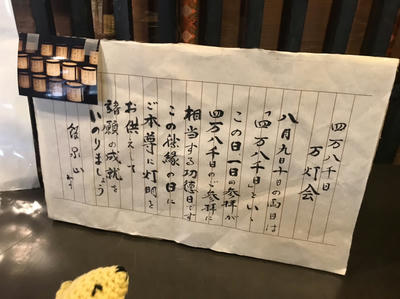 四万八千日
万灯会
八月九日十日の両日は
「四万八千日」といい
この日一日の参拝が
四万八千日のご参拝に
相当する功徳日です
この仏縁の日に
ご本尊に灯明を
お供えして
諸願の成就を
いのりましょう